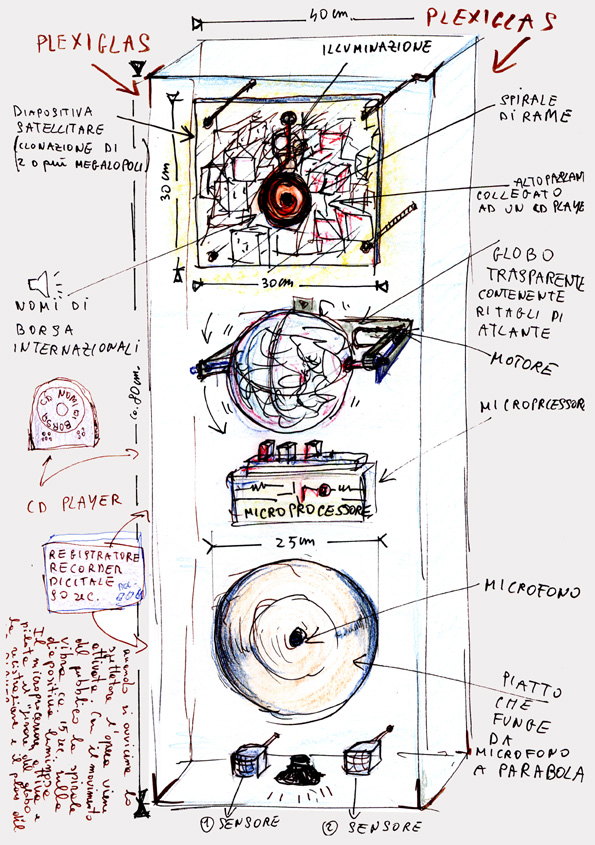 40 cm
PLEXIGLAS
PLEXIGLAS
ILLUMINAZIONE
DIAPOSITIVA
SATELLITARE
(CLONAZIONE DI
2 O più MEGALOPOLI)
30 cm
30 cm
SPIRALE
Di RAME
ALTOPARLAN
COLLEGATO
AD UN CD PLAYE
GLOBO
TRASPARENTE
CONTENENTE
RITAGLI DI
ATLANTE
MOTORE
NOMI DI
BORSA
INTERNAZIONALI
ca. 80 cm.
CD NOMI DI BORSA
CD PLAYER
MICROPRCESSOR
MICROPROCESSORE
25 cm
REGISTRATORE
RECORDER
DIGITALE
90 sec.
MICROFONO
PIATTO
CHE
FUNGE
DA
MICROFONO
A PARABOLA
quando si avvicina lo
spettatore l'opera viene
attivata con il movimento
del pubblico la spirale
vibra ca. 15 sec. sulla
diapositiva luminosa
Il microprocessore attiva e
pilota il "girare del globo
la registrazione e il play del
① SENSORE
② SENSORE